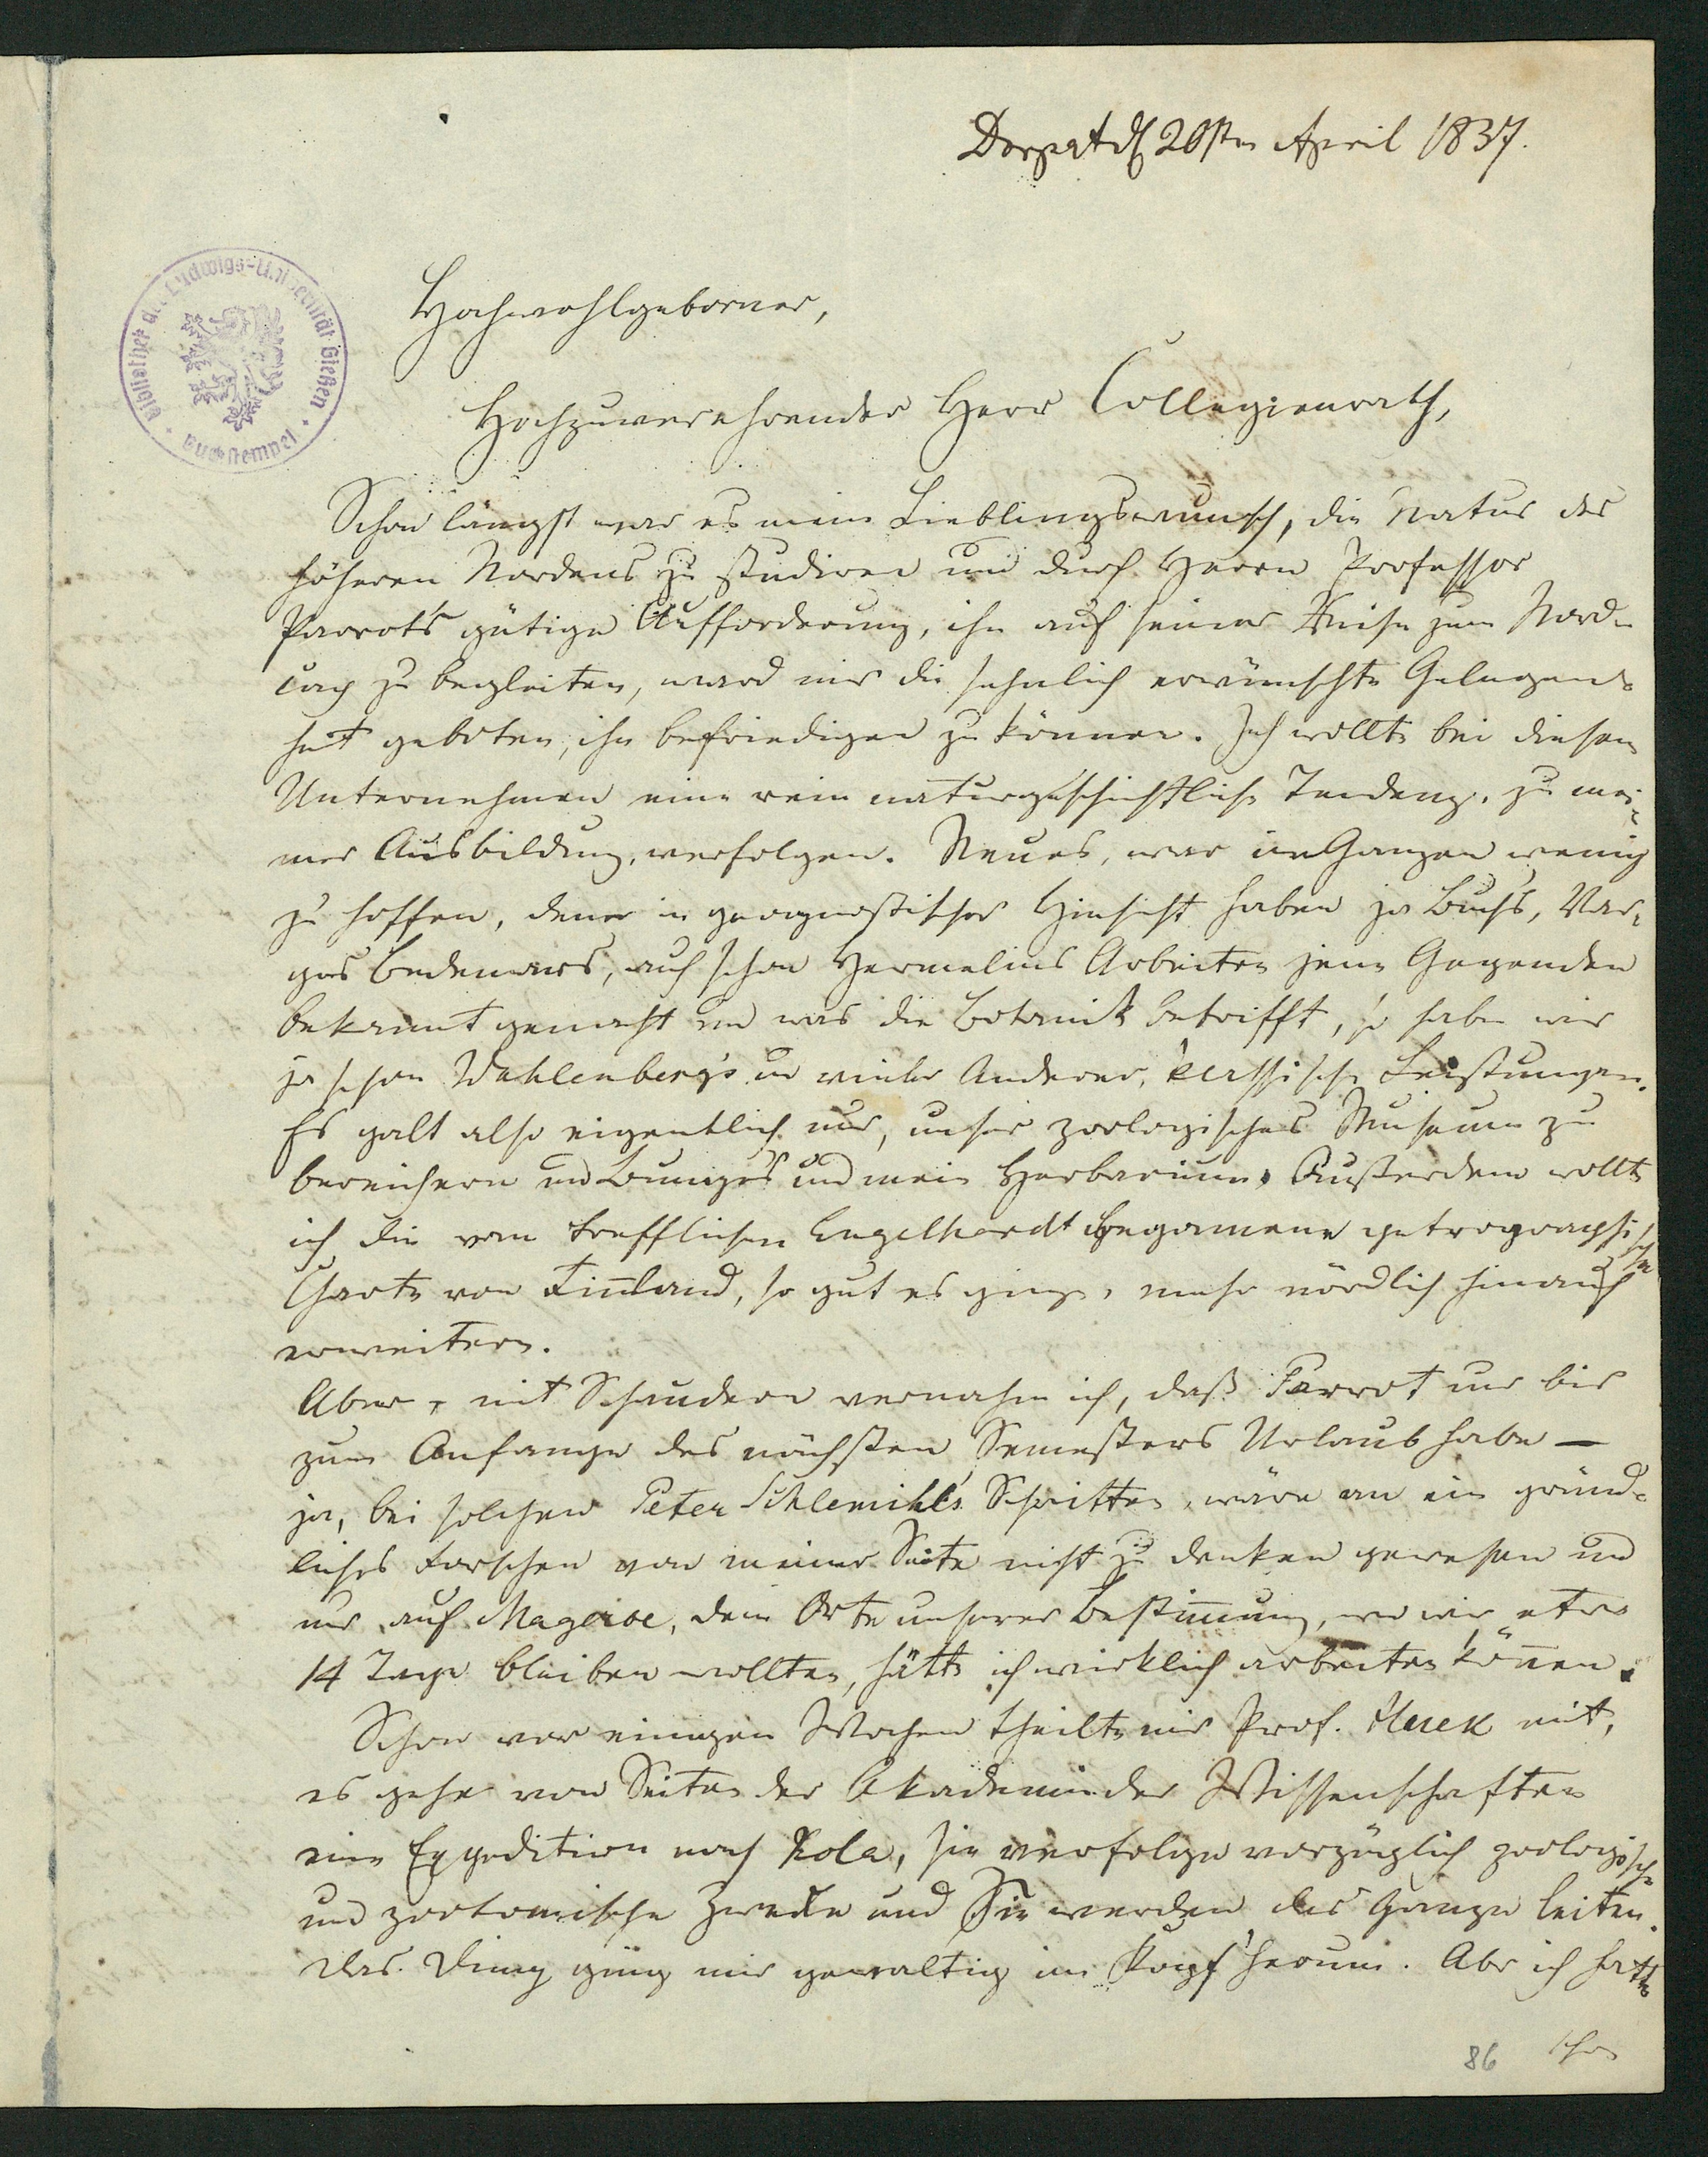 Dorpat d 20sten April 1837.
Bibliothek d. Ludwigs-Universität Gießen
Buchstempel
Hochwohlgeborner,
Hochzuverehrender Herr Collegienrath,
Schon längst war es mein Lieblingswunsch, die Natur des
höheren Nordens zu studiren und durch Herrn Professor
Parrot's gütige Aufforderung, ihn auf seiner Reise zum Nord-
cap zu begleiten, ward mir die sehnlich erwünschte Gelegen-
heit geboten, ihn befriedigen zu können. Ich wollte bei diesem
Unternehmen eine rein naturgeschichtliche Tendenz, zu mei-
ner Ausbildung, verfolgen. Neues, war im Ganzen wenig
zu hoffen, denn in geognostischer Hinsicht haben ja Buch's, Var-
gas Bedemars, auch schon Hermelins Arbeiten jene Gegenden
bekannt gemacht und was die Botanik betrifft, so haben wir
ja schon Wahlenberg's und vieler Anderer, klassische Leistungen.
Es galt also eigentlich nur, unser zoologisches Museum zu
bereichern und Bunge's und mein Herbarium. Außerdem wollte
ich die vom trefflichen Engelhardt begonnene petrographische
Charte von Finland, so gut es ginge, mehr nördlich hinauf
erweitern.
Aber, mit Schaudern vernahm ich, daß Parrot nur bis
zum Anfange des nächsten Semesters Urlaub habe —
ja, bei solchen Peter Schlemihl's Schritten, wäre an ein gründ-
liches Forschen von meiner Seite nicht zu denken gewesen und
nur auf Mageröe, dem Orte unserer Bestimung, wo wir etwa
14 Tage bleiben wollten, hätte ich wirklich arbeiten könen.
Schon vor einigen Wochen theilte mir Prof. Huek mit,
es gehe von Seiten der Akademie der Wissenschaften
eine Expedition nach Kola, sie verfolge vorzüglich zoologische
und zootomische Zwecke und Sie werden das Ganze leiten.
Das Ding ging mir gewaltig im Kopf herum. Aber ich hatte
86 schon